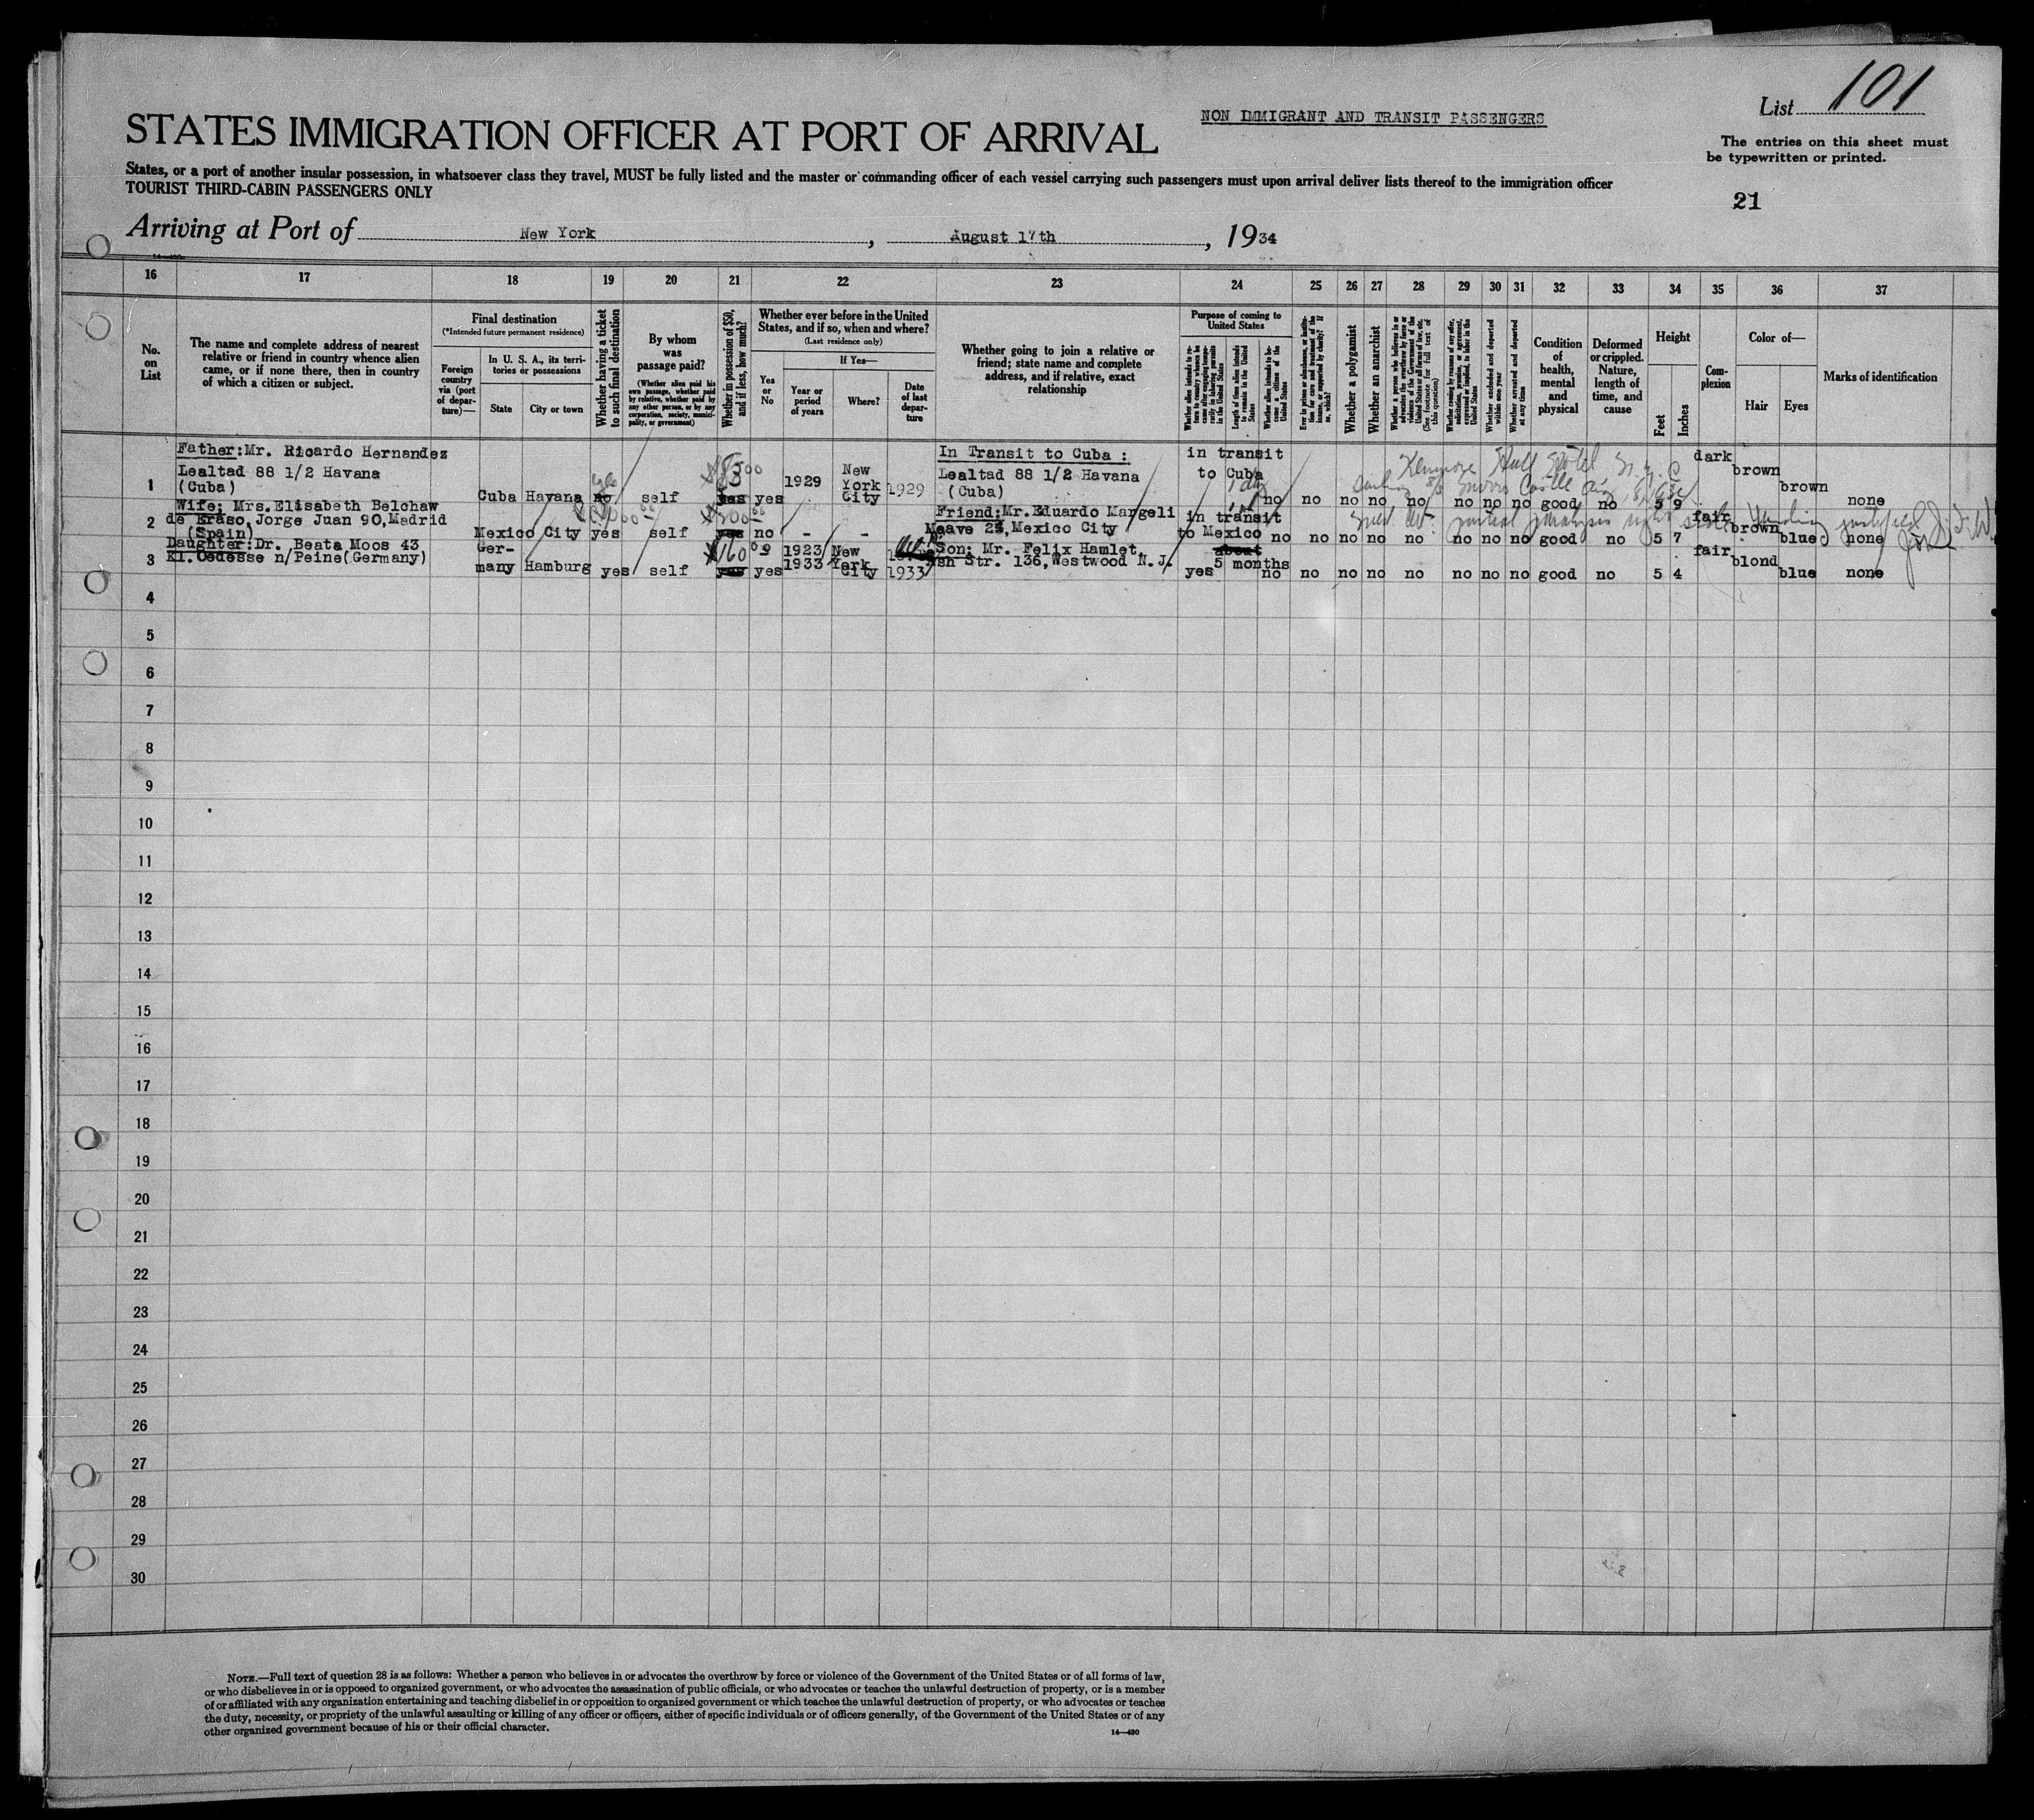 List 101
NON IMMIGRANT AND TRANSIT PASSENGERS
STATES IMMIGRATION OFFICER AT PORT OF ARRIVAL
The entries on this sheet must
be typewritten or printed.
States, or a port of another insular possession, in whatsoever class they travel, MUST be fully listed and the master or commanding officer of each vessel carrying such passengers must upon arrival deliver lists thereof to the immigration officer
TOURIST THIRD-CABIN PASSENGERS ONLY
21
Arriving at Port of New York, August 17th, 1934
16 17 18 19 20 21 22 23 24 25 26 27 28 29 30 31 32 33 34 35 36 37
No.
on
List
The name and complete address of nearest
relative or friend in country whence alien
came, or if none there, then in country
of which a citizen or subject.
Final destination
(*Intended future permanent residence)
Foreign
country
via (port
of depar-
ture)—
In U. S. A., its terri-
tories or possessions
State
City or town
Whether having a ticket
to such final destination
By whom
was
passage paid?
(Whether alien paid his
own passage, whether paid
by relative, whether paid by
any other person, or by any
corporation, society, munici-
pality, or government)
Whether in possession of $50,
and if less, how much?
Whether ever before in the United
States, and if so, when and where?
(Last residence only)
Yes
or
No
If Yes—
Year or
period
of years
Where?
Date
of last
depar-
ture
Whether going to join a relative or
friend; state name and complete
address, and if relative, exact
relationship
Purpose of coming to
United States
Whether alien intends to re-
turn to country whence he
came after engaging tempo-
rarily in laboring pursuits
in the United States
Length of time alien intends
to remain in the United
States
Whether alien intends to be-
come a citizen of the
United States
Ever in prison or almshouse, or institu-
tion for care and treatment of the
insane, or supported by charity? If
so, which?
Whether a polygamist
Whether an anarchist
Whether a person who believes in or
advocates the overthrow by force or
violence of the Government of the
United States or all forms of law, etc.
(See footnote for full text of
this question)
Whether coming by reasons of any offer,
solicitation, promise, or agreement,
expressed or implied, to labor in the
United States
Whether excluded and deported
within one year
Whether arrested and deported
at any time
Condition
of
health,
mental
and
physical
Deformed
or crippled.
Nature,
length of
time, and
cause
Height
Feet
Inches
Com-
plexion
Color of—
Hair
Eyes
Marks of identification
1
Father:Mr. Ricardo Hernandez
Lealtad 88 1/2 Havana
(Cuba)
Cuba Havana no self yes yes
$85 00
1929
New
York
City
1929
In Transit to Cuba :
Lealtad 88 1/2 Havana
(Cuba)
in transit
to Cuba
1 day
no no no no no no no no good no 5 9
dark
brown
brown
none
Kenmore Hall Hotel N.Y.C
Sailing S/S Morro Castle Aug 18, 1934
2
Wife: Mrs.Elisabeth Belchaw
de Eraso,Jorge Juan 90,Madrid
(Spain)
Mexico City yes self yes no - -
Friend:Mr.Eduardo Mangeli
Meave 23,Mexico City
in transit
to Mexico
no no no no no no no no good no 5 7
fair
brown
blue
none
partial paralysis right side
3
Daughter:Dr. Beata Moos 43
Kl. Oedesse n/Peine(Germany)
Ger-
many Hamburg yes self yes yes
$160 00
1923
1933
New
York
City
1933
Son: Mr. Felix Hamlet,
Ash Str. 136,Westwood N.J.
yes
about
5 months
no no no no no no no no good no 5 4
fair
blond
blue
none
4
5
6
7
8
9
10
11
12
13
14
15
16
17
18
19
20
21
22
23
24
25
26
27
28
29
30
NOTE.—Full text of question 28 is as follows: Whether a person who believes in or advocates the overthrow by force or violence of the Government of the United States or of all forms of law,
or who disbelieves in or is opposed to organized government, or who advocates the assassination of public officials, or who advocates or teaches the unlawful destruction of property, or is a member
of or affiliated with any organization entertaining and teaching disbelief in or opposition to organized government or which teaches the unlawful destruction of property, or who advocates or teaches
the duty, necessity, or propriety of the unlawful assaulting or killing of any officer or officers, either of specific individuals or of officers generally, of the Government of the United States or of any
other organized government because of his or their official character.
14—430